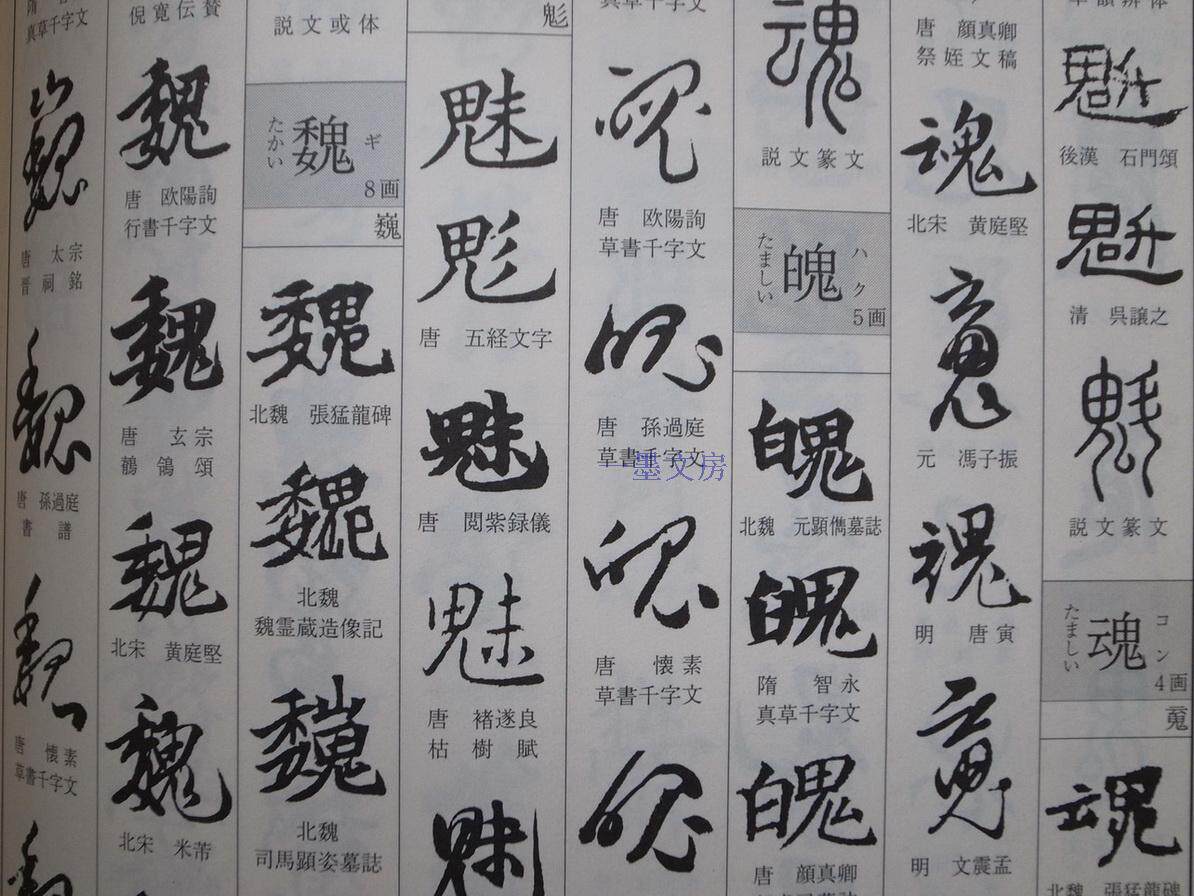 後漢　石門頌
清　呉譲之
説文篆文
魂
コン
たましい
4画
䰟
北魏　張猛龍碑
唐　顔真卿
祭姪文稿
魂
北宋　黄庭堅
元　馮子振
魂
明　唐寅
明　文震孟
魂
説文篆文
魄
ハク
たましい
5画
魄
北魏　元顕儁墓誌
魄
隋　智永
真草千字文
魄
唐　顔真卿
真草千字文
唐　欧陽詢
草書千字文
唐　孫過庭
草書千字文
墨文房
唐　懐素
草書千字文
鬽
魅
唐　五経文字
魅
唐　閲紫録儀
魅
唐　褚遂良
枯樹賦
魅
説文或体
魏
ギ
たかい
8画
巍
魏
北魏　張猛龍碑
魏
北魏
魏霊蔵造像記
巍
北魏
司馬顕姿墓誌
倪寛伝賛
魏
唐　欧陽詢
行書千字文
魏
唐　玄宗
鶺鴒頌
魏
北宋　黄庭堅
魏
北宋　米芾
真草千字文
巍
唐　太宗
晋祠銘
魏
唐　孫過庭
書譜
魏
唐　懐素
草書千字文